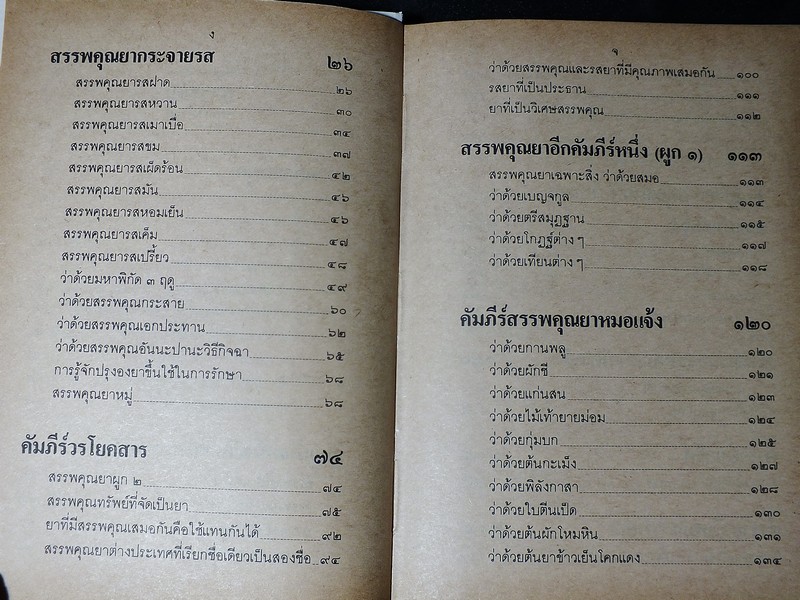 ง
สรรพคุณยากระจายรส ๒๖
สรรพคุณยารสฝาด ๒๖
สรรพคุณยารสหวาน ๓๐
สรรพคุณยารสเมาเบื่อ ๓๔
สรรพคุณยารสขม ๓๗
สรรพคุณยารสเผ็ดร้อน ๔๒
สรรพคุณยารสมัน ๔๖
สรรพคุณยารสหอมเย็น ๔๖
สรรพคุณยารสเค็ม ๔๗
สรรพคุณยารสเปรี้ยว ๔๘
ว่าด้วยมหาพิกัด ๓ ฤดู ๔๙
ว่าด้วยสรรพคุณกระสาย ๖๐
ว่าด้วยสรรพคุณเอกประทาน ๖๒
ว่าด้วยสรรพคุณอันนะปานะวิธีกิจฉา ๖๕
การรู้จักปรุงองยาขึ้นใช้ในการรักษา ๖๘
สรรพคุณยาหมู่ ๖๘
คัมภีร์วรโยคสาร ๗๔
สรรพคุณยาผูก ๒ ๗๔
สรรพคุณทรัพย์ที่จัดเป็นยา ๗๕
ยาที่มีสรรพคุณเสมอกันคือใช้แทนกันได้ ๙๒
สรรพคุณยาต่างประเทศที่เรียกชื่อเดียวเป็นสองชื่อ ๙๔
จ
ว่าด้วยสรรพคุณและรสยาที่มีคุณภาพเสมอกัน ๑๐๐
รสยาที่เป็นประธาน ๑๑๑
ยาที่เป็นวิเศษสรรพคุณ ๑๑๒
สรรพคุณยาอีกคัมภีร์หนึ่ง (ผูก ๑) ๑๑๓
สรรพคุณยาเฉพาะสิ่ง ว่าด้วยสมอ ๑๑๓
ว่าด้วยเบญจกูล ๑๑๔
ว่าด้วยตรีสมุฏฐาน ๑๑๕
ว่าด้วยโกฏฐ์ต่าง ๆ ๑๑๗
ว่าด้วยเทียนต่าง ๆ ๑๑๘
คัมภีร์สรรพคุณยาหมอแจ้ง ๑๒๐
ว่าด้วยกานพลู ๑๒๐
ว่าด้วยผักชี ๑๒๑
ว่าด้วยแก่นสน ๑๒๓
ว่าด้วยไม้เท้ายายม่อม ๑๒๔
ว่าด้วยกุ่มบก ๑๒๕
ว่าด้วยต้นกะเม็ง ๑๒๗
ว่าด้วยพิลังกาสา ๑๒๘
ว่าด้วยใบตีนเป็ด ๑๓๐
ว่าด้วยต้นผักโหมหิน ๑๓๑
ว่าด้วยต้นยาข้าวเย็นโคกแดง ๑๓๔